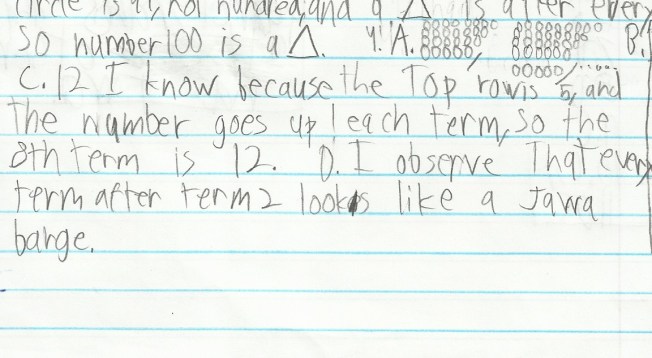 So number 100 is a △. 4. A. B.
C. 12 I know because the Top row is 5, and
The number goes up 1 each term, so the
8th term is 12. D. I observe That every
term after term 2 looks like a Jawa
barge.